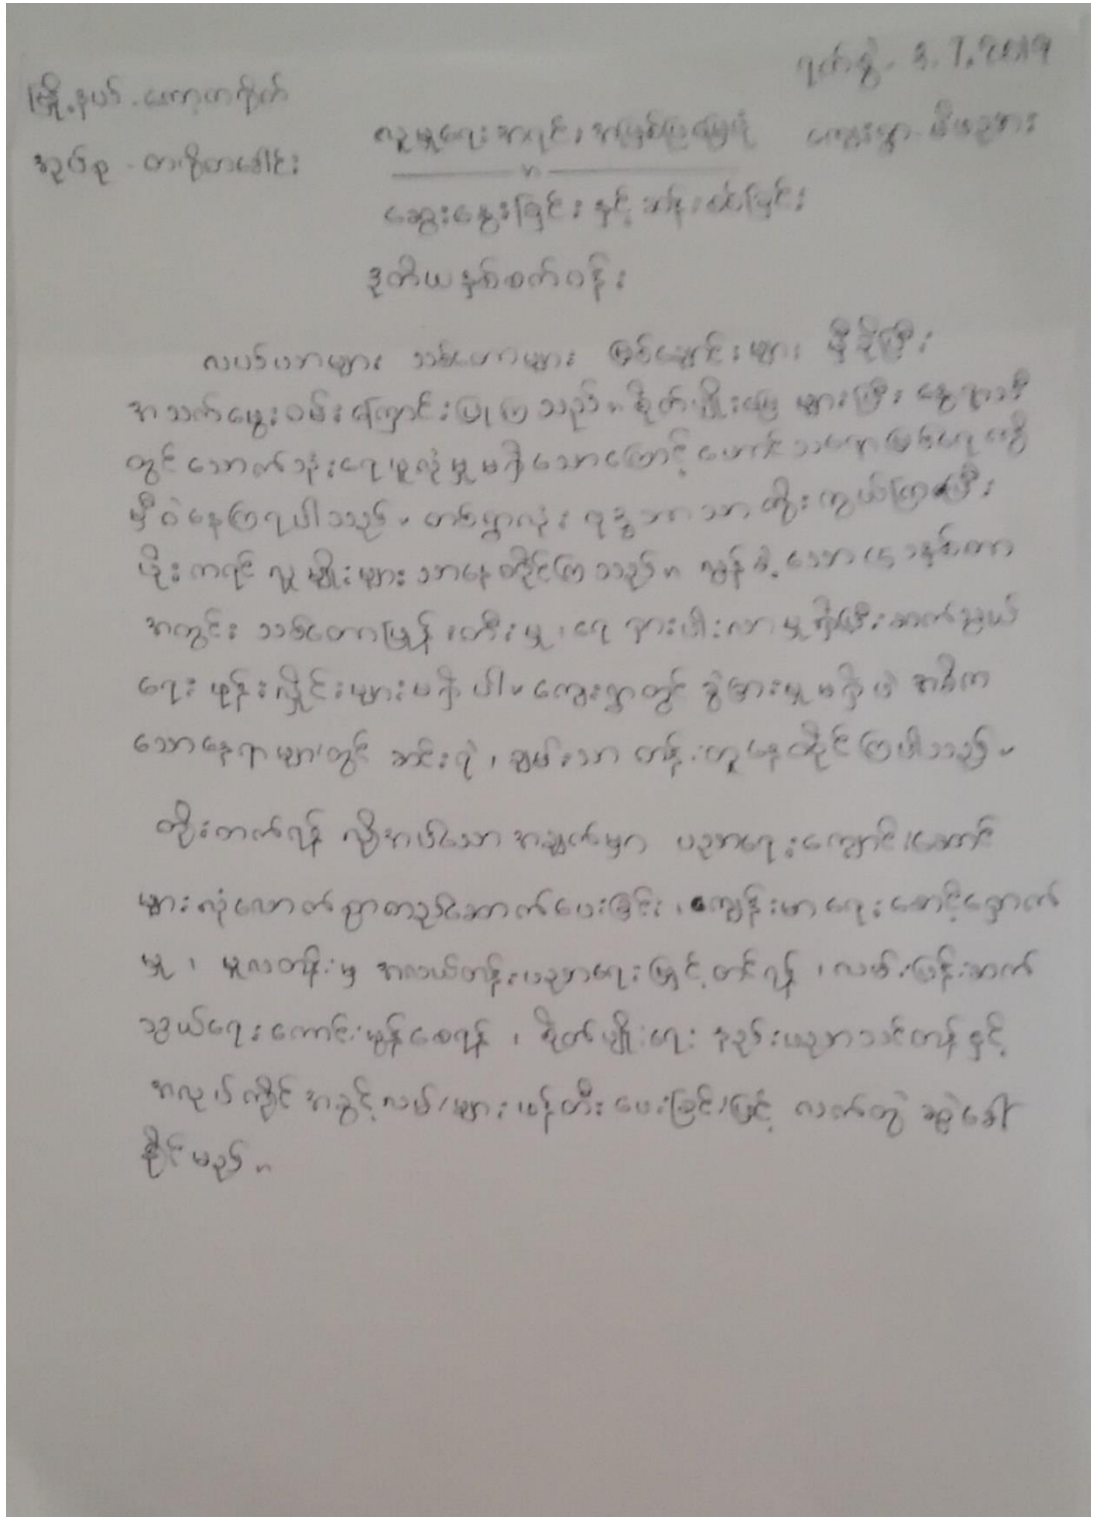 ရက်စွဲ - 3.7.2019
မြို့နယ် - ကော့ကရိတ်
လူမှုရေးအရင်းအမြစ်ပြမြေပုံ ကျေးရွာ -
အုပ်စု -
ဆွေးနွေးခြင်းနှင့် ဆန်းစစ်ခြင်း
ဒုတိယနှစ်စက်ဝန်း
လယ်ယာများ သစ်တောများ မြစ်ချောင်းများ မှီခိုပြီး
အသက်မွေးဝမ်းကြောင်းပြုကြသည်။ စိုက်ပျိုးမြေများပြီး နွေရာသီ
တွင် သောက်သုံးရေဖူလုံမှုမရှိသောကြောင့် တောင်သဘာဝမြစ်ရေကို
မှီဝဲနေကြရပါသည်။ တစ်ရွာလုံး ဗုဒ္ဓဘာသာကိုးကွယ်ကြပြီး
ပိုးကရင်လူမျိုးများသာနေထိုင်ကြသည်။ လွန်ခဲ့သော ၄၁ နှစ်တာ
အတွင်း သစ်တောပြုန်းတီးမှု၊ ရေရှားပါးလာမှုရှိပြီး ဆက်သွယ်
ရေးဖုန်းလိုင်းများမရှိပါ။ ကျေးရွာတွင် ခွဲခြားမှုမရှိပဲ အဓိက
သောနေရာများတွင် ဆင်းရဲ၊ ချမ်းသာ တန်းတူနေထိုင်ကြပါသည်။
တိုးတက်ရန် လိုအပ်သောအချက်မှာ ပညာရေးကျောင်းဆောင်
များလုံလောက်စွာတည်ဆောက်ပေးခြင်း၊ ကျန်းမာရေးစောင့်ရှောက်
မှု၊ မူလတန်းမှ အလယ်တန်းပညာရေးမြှင့်တင်ရန်၊ လမ်းပန်းဆက်
သွယ်ရေးကောင်းမွန်စေရန်၊ စိုက်ပျိုးရေး နည်းပညာသင်တန်းနှင့်
အလုပ်ကိုင်အခွင့်လမ်းများဖန်တီးပေးခြင်းဖြင့် လက်တွဲခေါ်
နိုင်မည်။